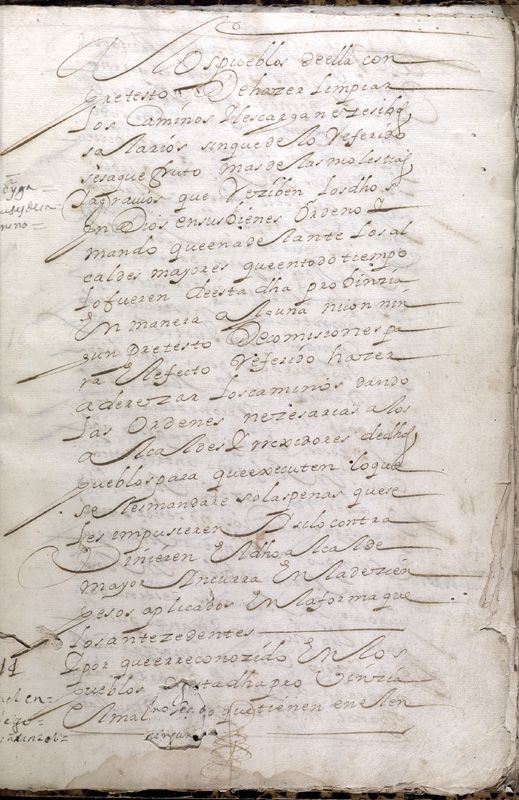 los pueblos de ella con
pretesto De hazer limpiar
los Caminos Y les cargan e resiben
salarios sin que de lo Referido
se saque fruto mas de las molestias
Y agravios que Reziben los dhos
Yndios en sus bienes Ordeno Y
mando que en adelante los al
caldes mayores que en todo tiempo
lo fueren de esta dha probinzia
En manera alguna ni con nin
gun pretesto De comisiones pa
ra El efecto Referido hazer
aderezar los caminos dando
las Ordenes nezesarias a los
Alcaldes Y rrexidores de dhos
pueblos para que executen lo que
se les mandare so las penas que se
les impusieren Y si lo contra
binieren El dho alcalde
mayor Yncurra En la de zien
pesos aplicados En la forma que
los antezedentes
Y por que e rreconozido En los
pueblos de esta dha probinzia
El mal que tienen en el en